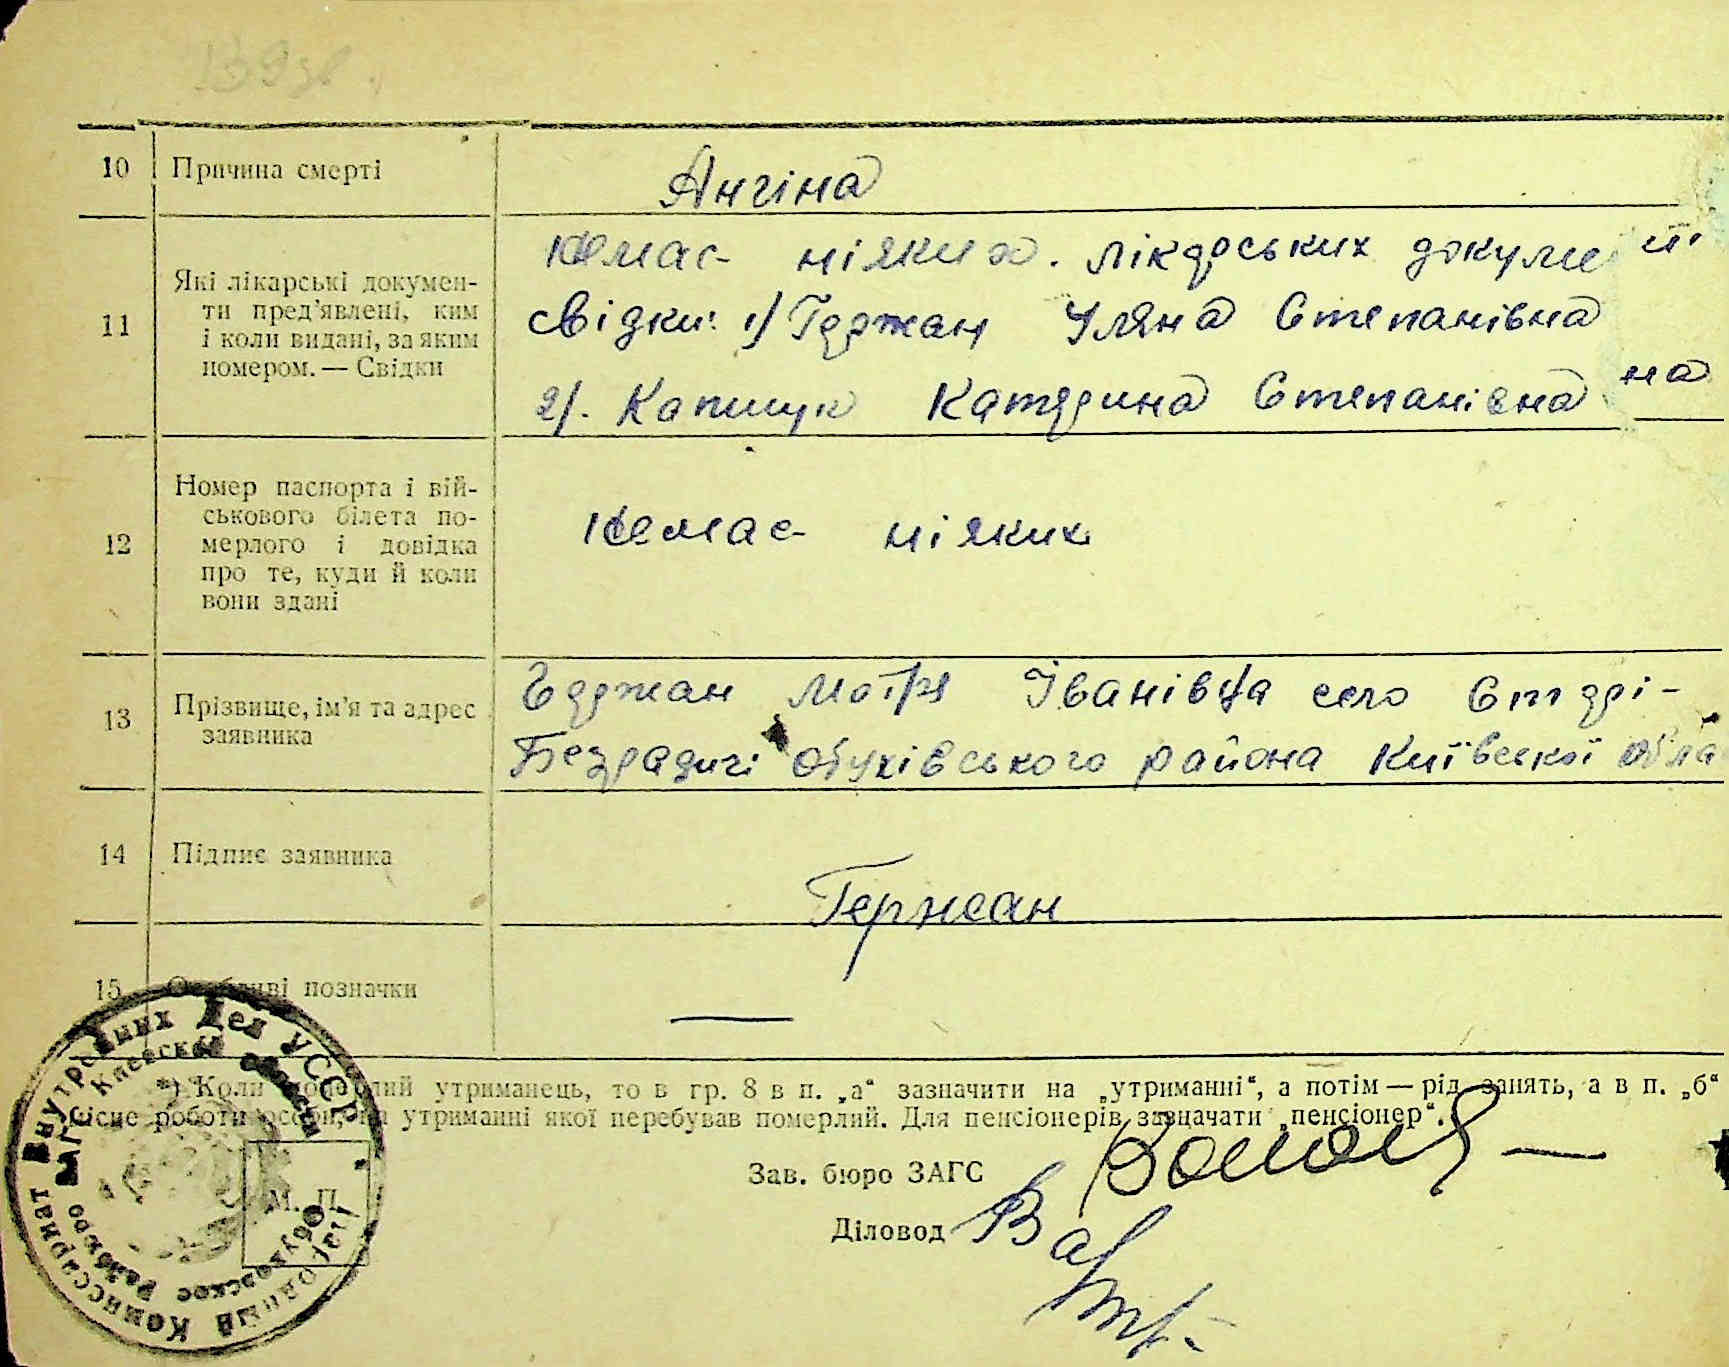 10 Причина смерті Ангіна
11 Які лікарські докумен-
ти пред'явлені, ким
і коли видані, за яким
номером. — Свідки
Немає ніяких лікарських
свідки: 1) Гержан Уляна Степанівна
2). Капшук Катерина Степанівна
на
12 Номер паспорта і вій-
ськового білета по-
мерлого і довідка
про те, куди й коли
вони здані
Немає ніяких
13 Прізвище, ім'я та адрес
заявника
Гержан Мотря Іванівна село Старі-
Безрадичі Обухівського района Київської обла
14 Підпис заявника Гержан
15 Особливі позначки —
*) Коли померлий утриманець, то в гр. 8 в п. „а“ зазначити на „утриманні“, а потім — рід занять, а в п. „б“
місце роботи особи, на утриманні якої перебував померлий. Для пенсіонерів зазначати „пенсіонер“.
Зав. бюро ЗАГС
Діловод
М. П.
Народный Комиссариат Внутренних Дел УССР
Обуховское Райбюро ЗАГС Киевской области